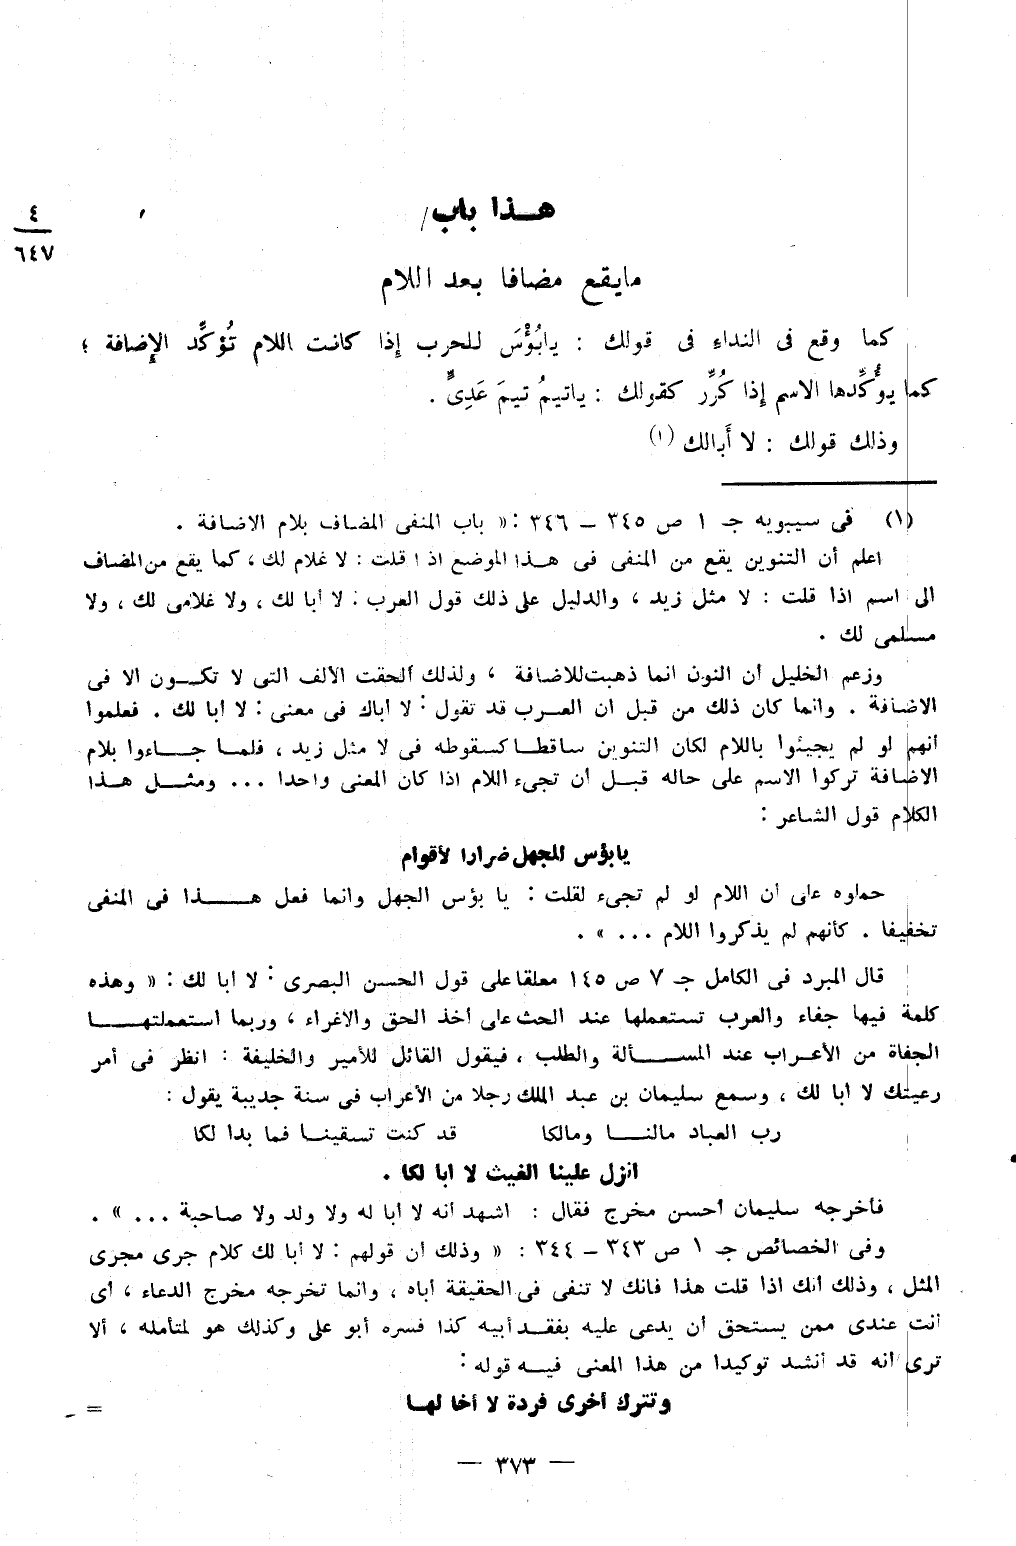 هـــذا باب/
٤
٦٤٧
مايقع مضافا بعد اللام
كما وقع فى النداء فى قولك : يابُؤْسَ للحرب إذا كانت اللام تُؤكِّد الإضافة ؛
كما يؤُكِّدها الاسم إذا كُرِّر كقولك : ياتيمُ تيمَ عَدِىٍّ .
وذلك قولك : لا أَبالك (١)
(١) فى سيبويه جـ ١ ص ٣٤٥ – ٣٤٦ : « باب المنفى المضاف بلام الاضافة .
اعلم أن التنوين يقع من المنفى فى هـذا الموضع اذا قلت : لا غلام لك ، كما يقع من المضاف
الى اسم اذا قلت : لا مثل زيد ، والدليل على ذلك قول العرب : لا أبا لك ، ولا غلامى لك ، ولا
مسلمى لك .
وزعم الخليل أن النون انما ذهبت للاضافة ، ولذلك ألحقت الألف التى لا تكـــون الا فى
الاضافة . وانما كان ذلك من قبل أن العــرب قد تقول : لا أباك فى معنى : لا أبا لك . فعلموا
أنهم لو لم يجيئوا باللام لكان التنوين ساقطـا كسقوطه فى لا مثل زيد ، فلمـا جـــاءوا بلام
الاضـافة تركوا الاسم على حاله قبـل أن تجىء اللام اذا كان المعنى واحدا ... ومثـــل هــذا
الكلام قول الشاعر :
يابؤس للجهل ضرارا لأقوام
حملوه على أن اللام لو لم تجىء لقلت : يا بؤس الجهل وانما فعل هـــــذا فى المنفى
تخفيفا . كأنهم لم يذكروا اللام ... » .
قال المبرد فى الكامل جـ ٧ ص ١٤٥ معلقا على قول الحسن البصرى : لا أبا لك : « وهذه
كلمة فيها جفاء والعرب تستعملها عند الحث على أخذ الحق والاغراء ، وربما استعملتهـــا
الجفاة من الأعـراب عند المســــألة والطلب ، فيقول القائل للأمير والخليفة : انظر فى أمر
رعيتك لا أبا لك ، وسمع سليمان بن عبد الملك رجلا من الأعراب فى سنة جديبة يقول :
رب العباد مالنــــا ومالكا قد كنت تسقينــا فما بدا لكا
انزل علينا الغيث لا أبا لكا .
فأخرجه سليمان أحسن مخرج فقال : اشهد أنه لا أبا له ولا ولد ولا صاحبة ... » .
وفى الخصائص جـ ١ ص ٣٤٣ – ٣٤٤ : « وذلك أن قولهم : لا أبا لك كلام جرى مجرى
المثل ، وذلك أنك اذا قلت هذا فانك لا تنفى فى الحقيقة أباه ، وانما تخرجه مخرج الدعاء ، أى
أنت عندى ممن يستحق أن يدعى عليه بفقـد أبيه كذا فسره أبو على وكذلك هو لمتأمله ، ألا
ترى أنه قد أنشد توكيدا من هذا المعنى فيـــه قوله :
وتترك أخرى فردة لا أخا لهـا
=
— ٣٧٣ —